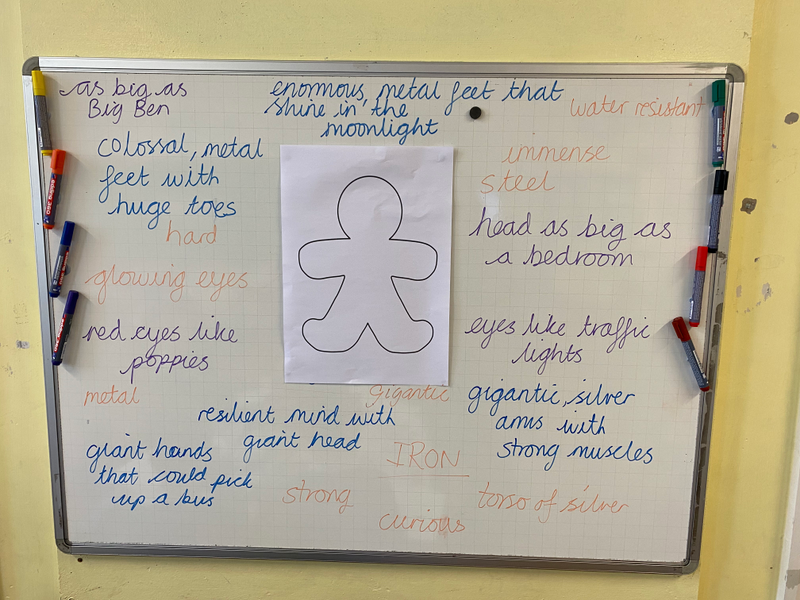 as big as
Big Ben
enormous, metal feet that
shine in the
moonlight
water resistant
colossal, metal
feet with
huge toes
immense
steel
hard
head as big as
a bedroom
glowing eyes
red eyes like
poppies
eyes like traffic
lights
metal
gigantic
gigantic, silver
arms with
strong muscles
resilient mind with
giant head
giant hands
that could pick
up a bus
IRON
strong
torso of silver
curious